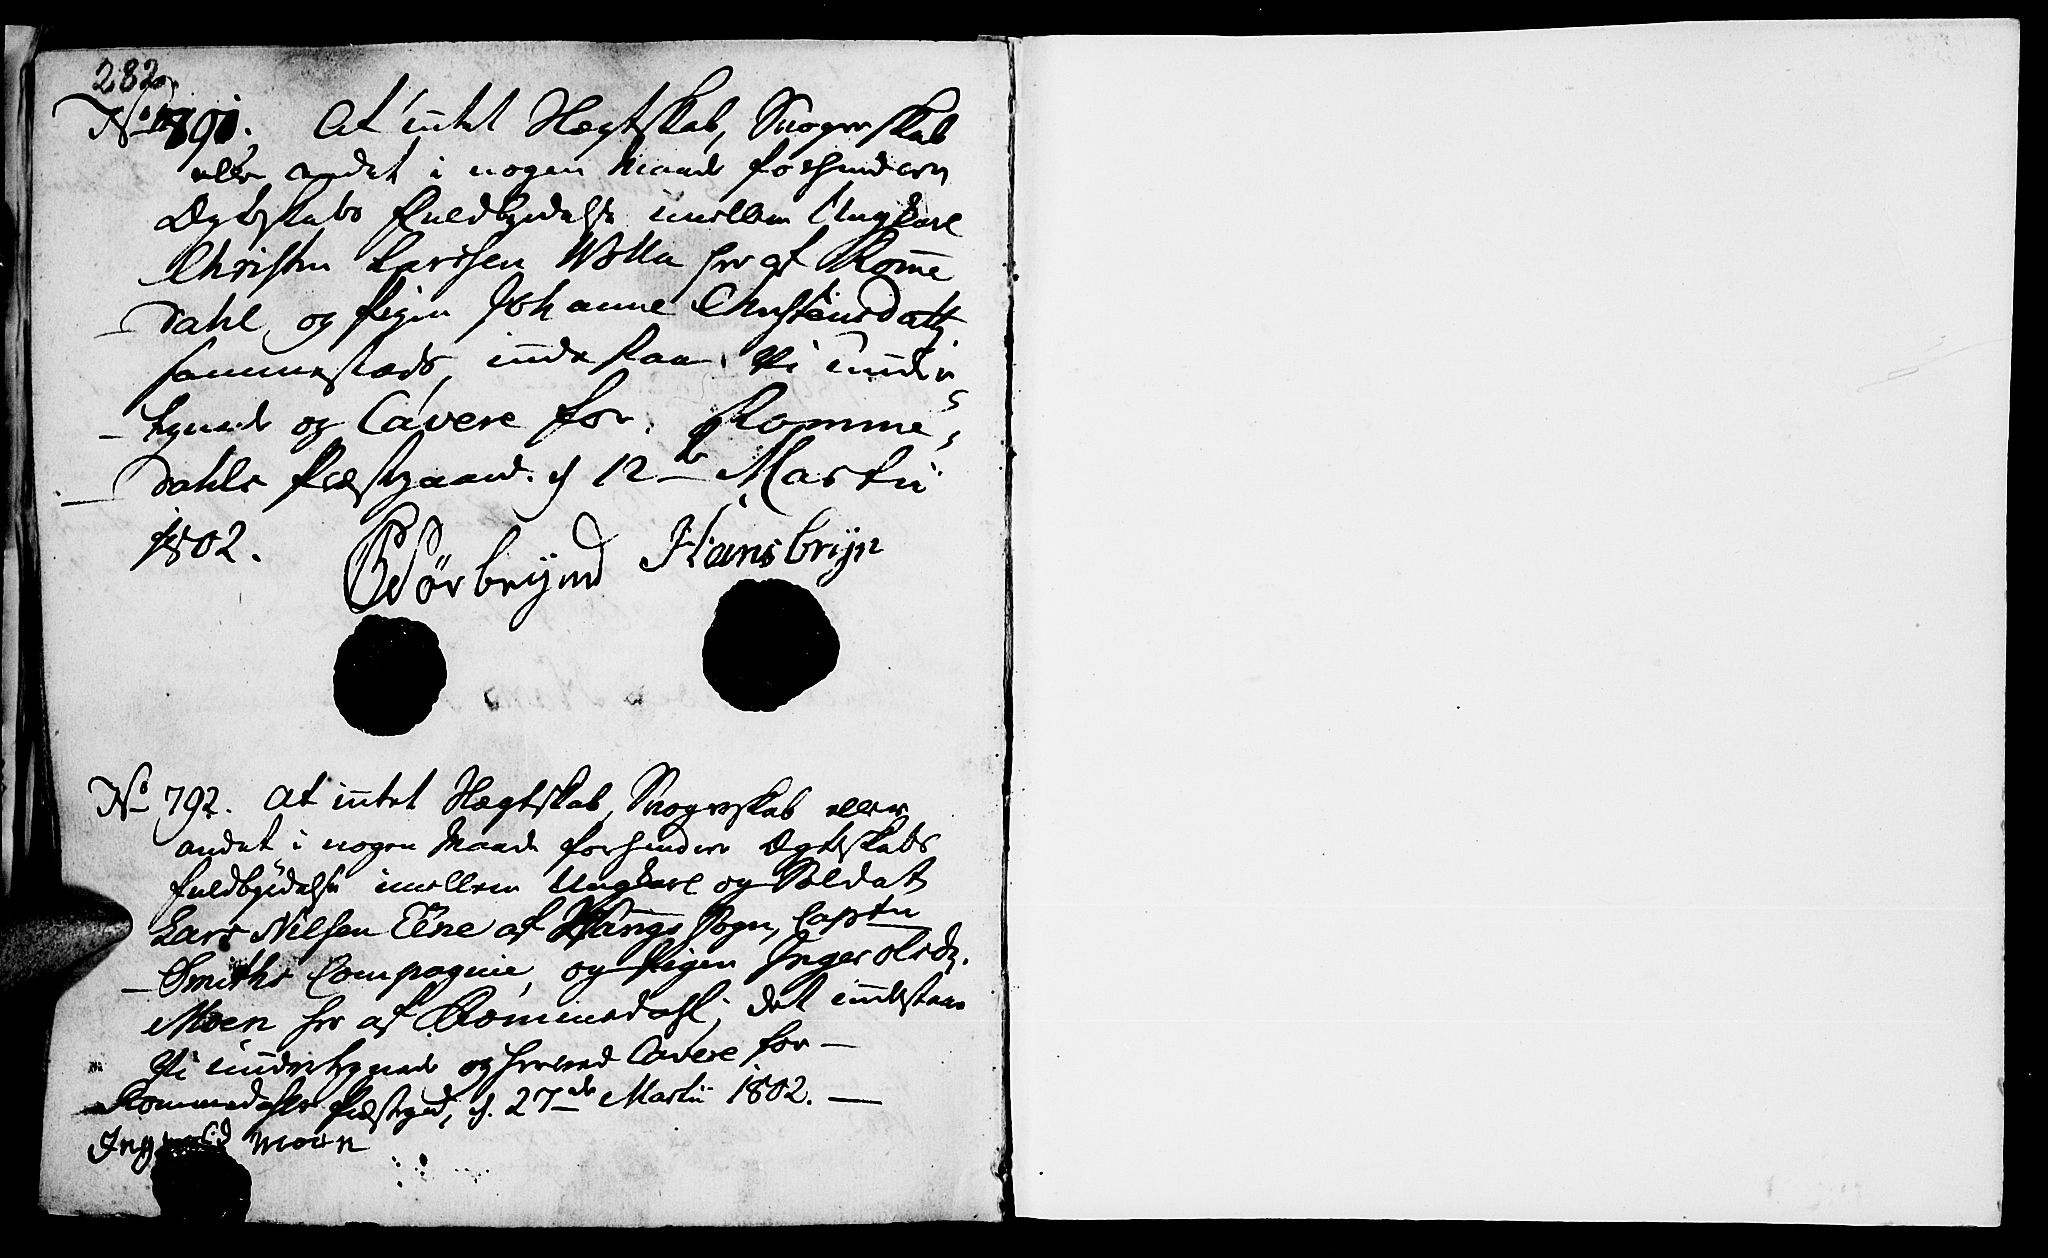 282.
No 791. At intet Slægtskab, Svogerskab
eller andet i nogen Maade forhindrer
Ægteskabs fuldbyrdelse imellem Ungkarl
Christen Larssen Wolla her af Rome
dahl og Pigen Johanne Christensdatt
sammestæds, indestaar Vi under
tegnede og Cavere for. Romme,
dahls Præstgaard d 12te Martii
1802.
Sørbrynd Hans bryn
No 792. At intet Slægtskab, Svogerskab eller
andet i nogen Maade forhindrer Ægteskabs
fuldbyrdelse imellem Ungkarl og Soldat
Lars Nilsen Eene af Wangs Sogn, Captn
Smiths Compagnie, og Pigen Inger Olsdt.
Moen her af Rommedahl; det indestaar
Vi undertegnede og herved Cavere for
Rommedahls Præstgrd, d. 27de Martii 1802.
Moen